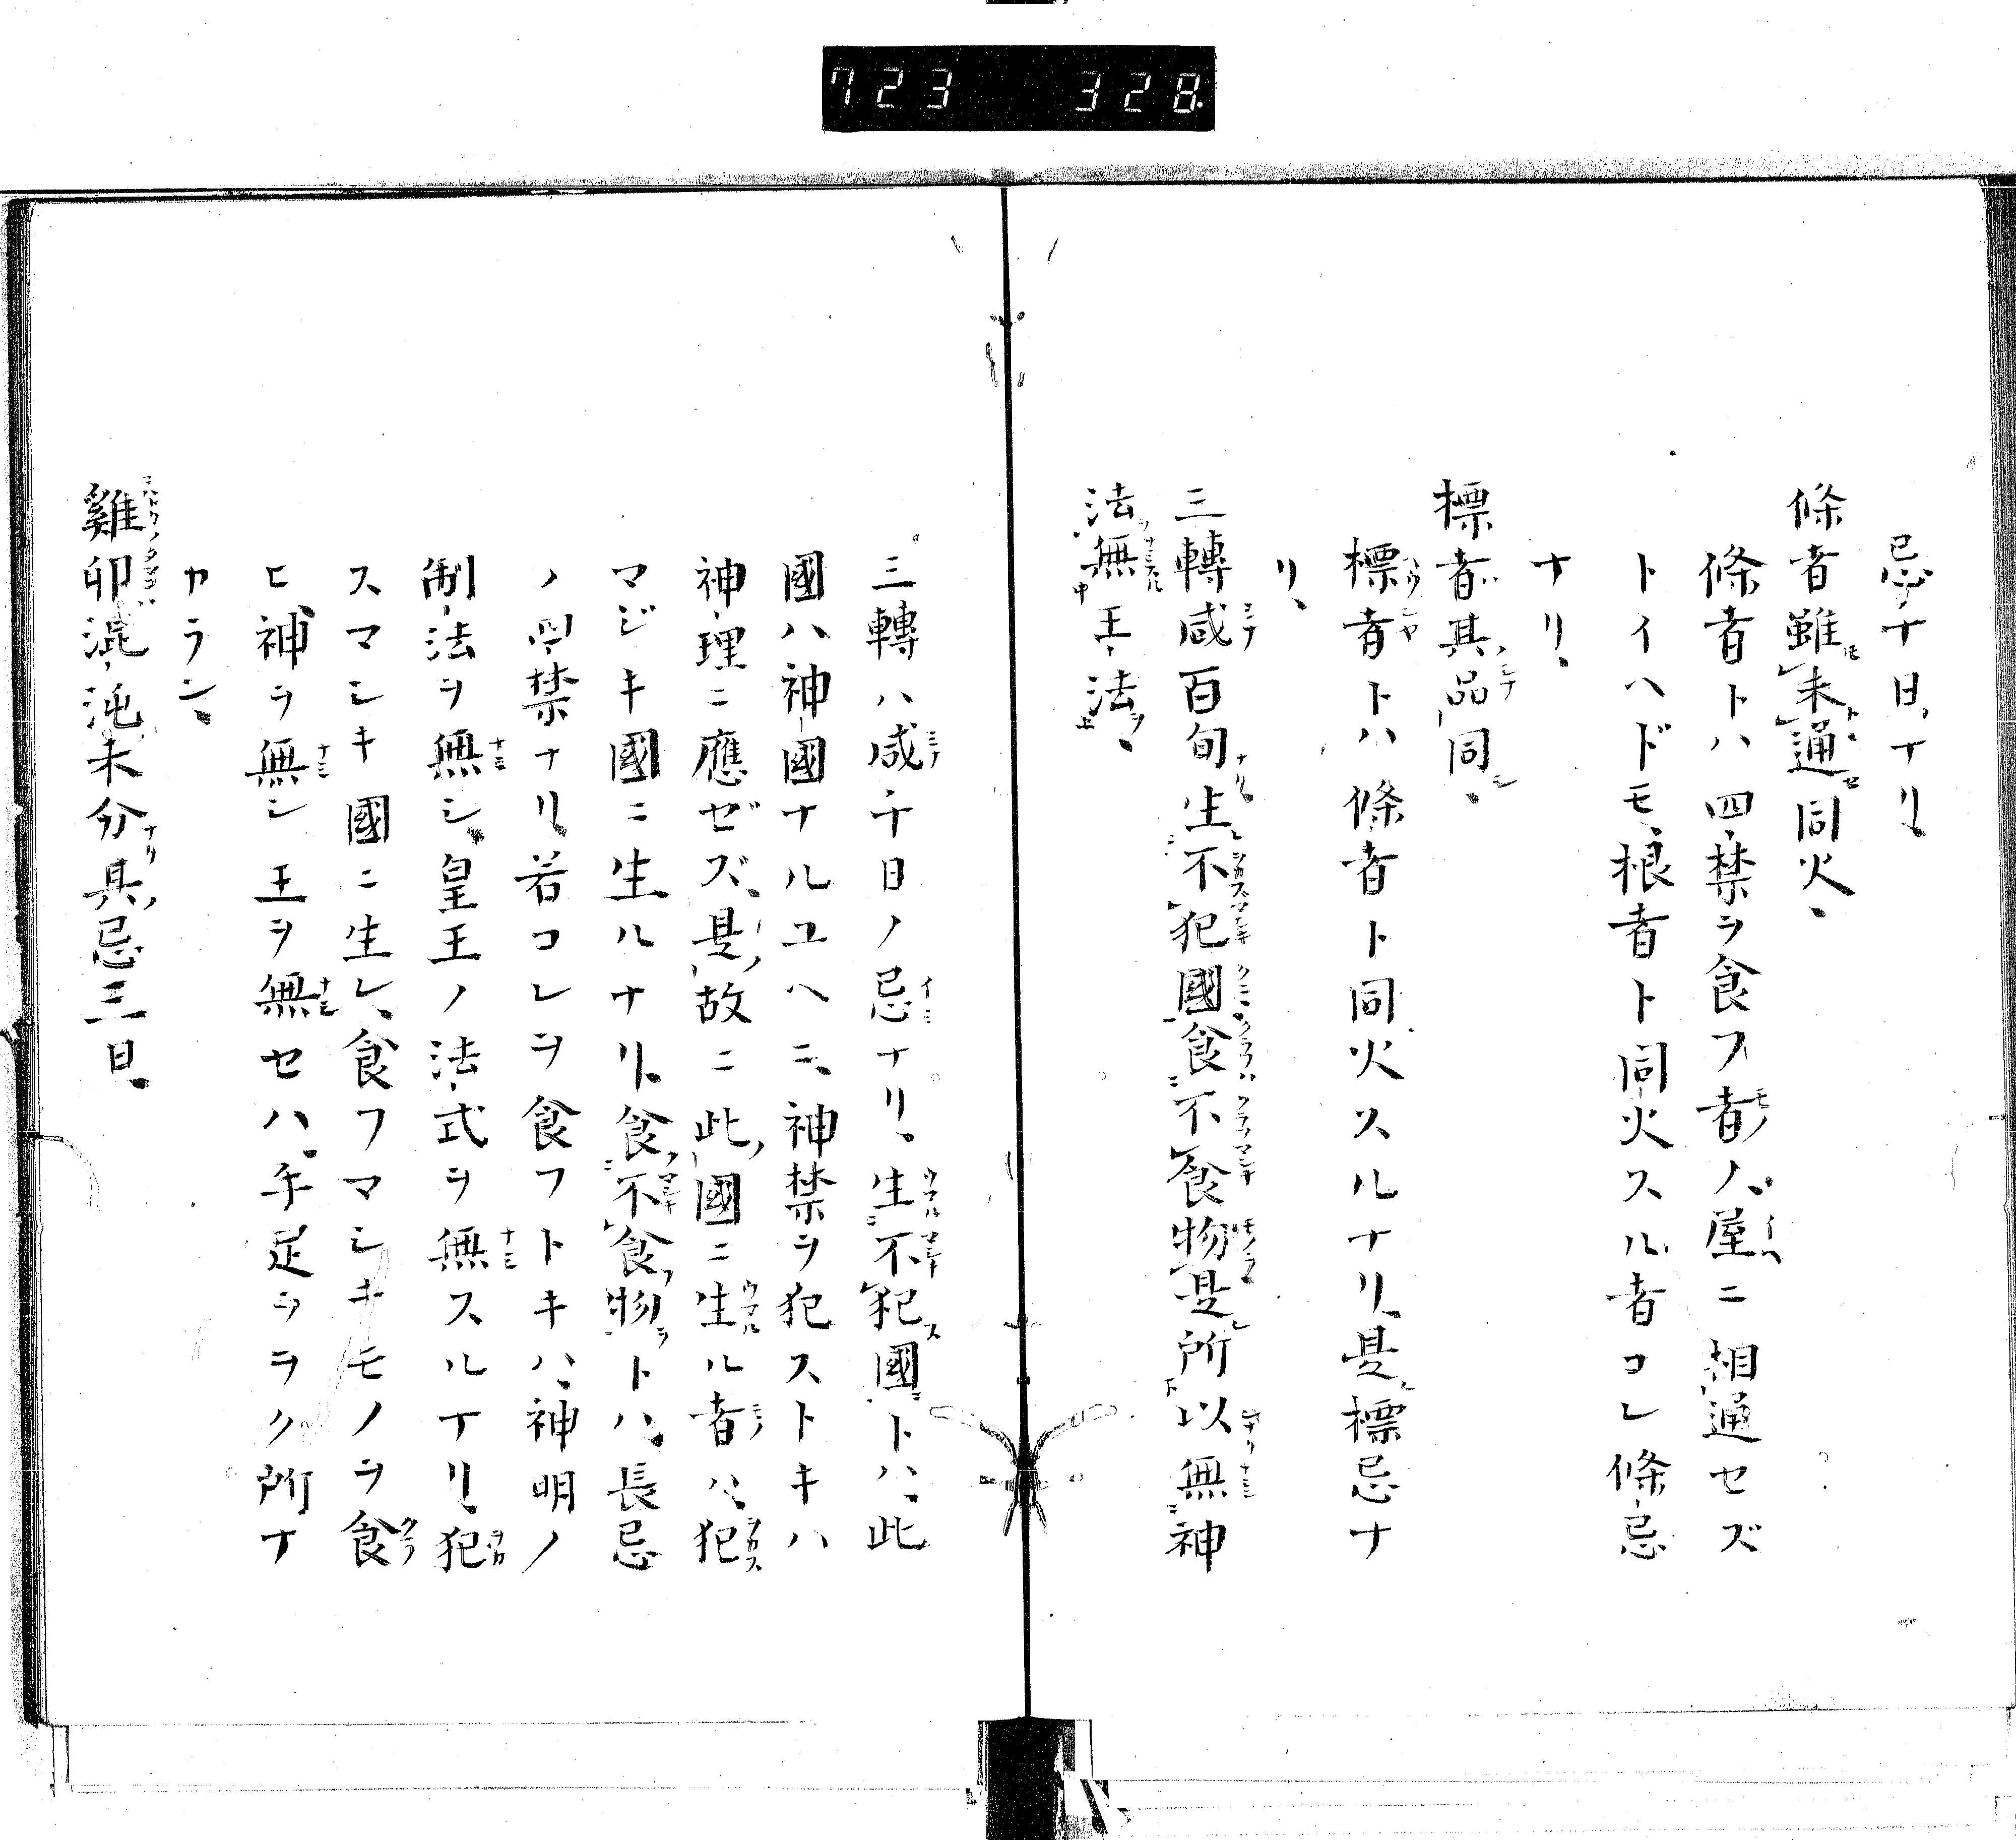 723 328
忌十日ナリ、
條者雖未通同火、
條者トハ四禁ヲ食フ者ノ屋ニ相通セズ
トイヘドモ根者ト同火スル者コレ條忌
ナリ、
標者其品同、
標者トハ條者ト同火スルナリ、是標忌ナ
リ、
三轉咸百旬生不犯國食不食物是所以無神
法無王法、
三轉ハ咸千日ノ忌ナリ、生不犯國トハ、此
國ハ神國ナルユヘニ、神禁ヲ犯ストキハ
神理ニ應ゼズ、是故ニ此國ニ生ル者ハ、犯
マジキ國ニ生ルナリ、食不食物トハ、長忌
ノ四禁ナリ、若コレヲ食フトキハ、神明ノ
制法ヲ無シ、皇王ノ法式ヲ無スルナリ、犯
スマシキ國ニ生レ、食フマシキモノヲ食
ヒ神ヲ無シ王ヲ無セハ、手足ヲヲク所ナ
カラン、
雞卵混沌未分具忌三日、